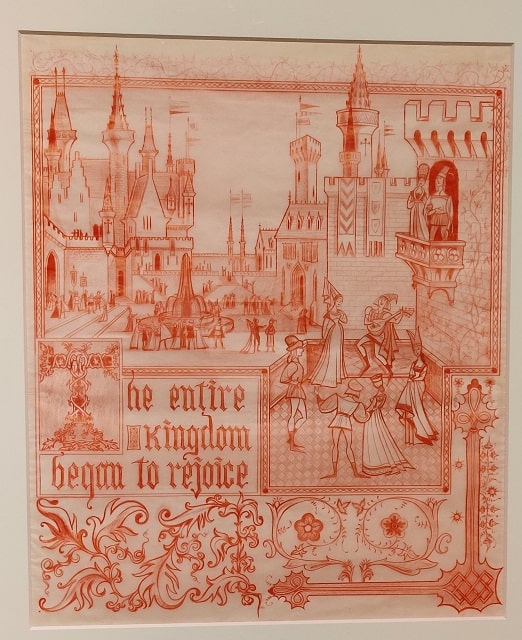 The entire
Kingdom
began to rejoice